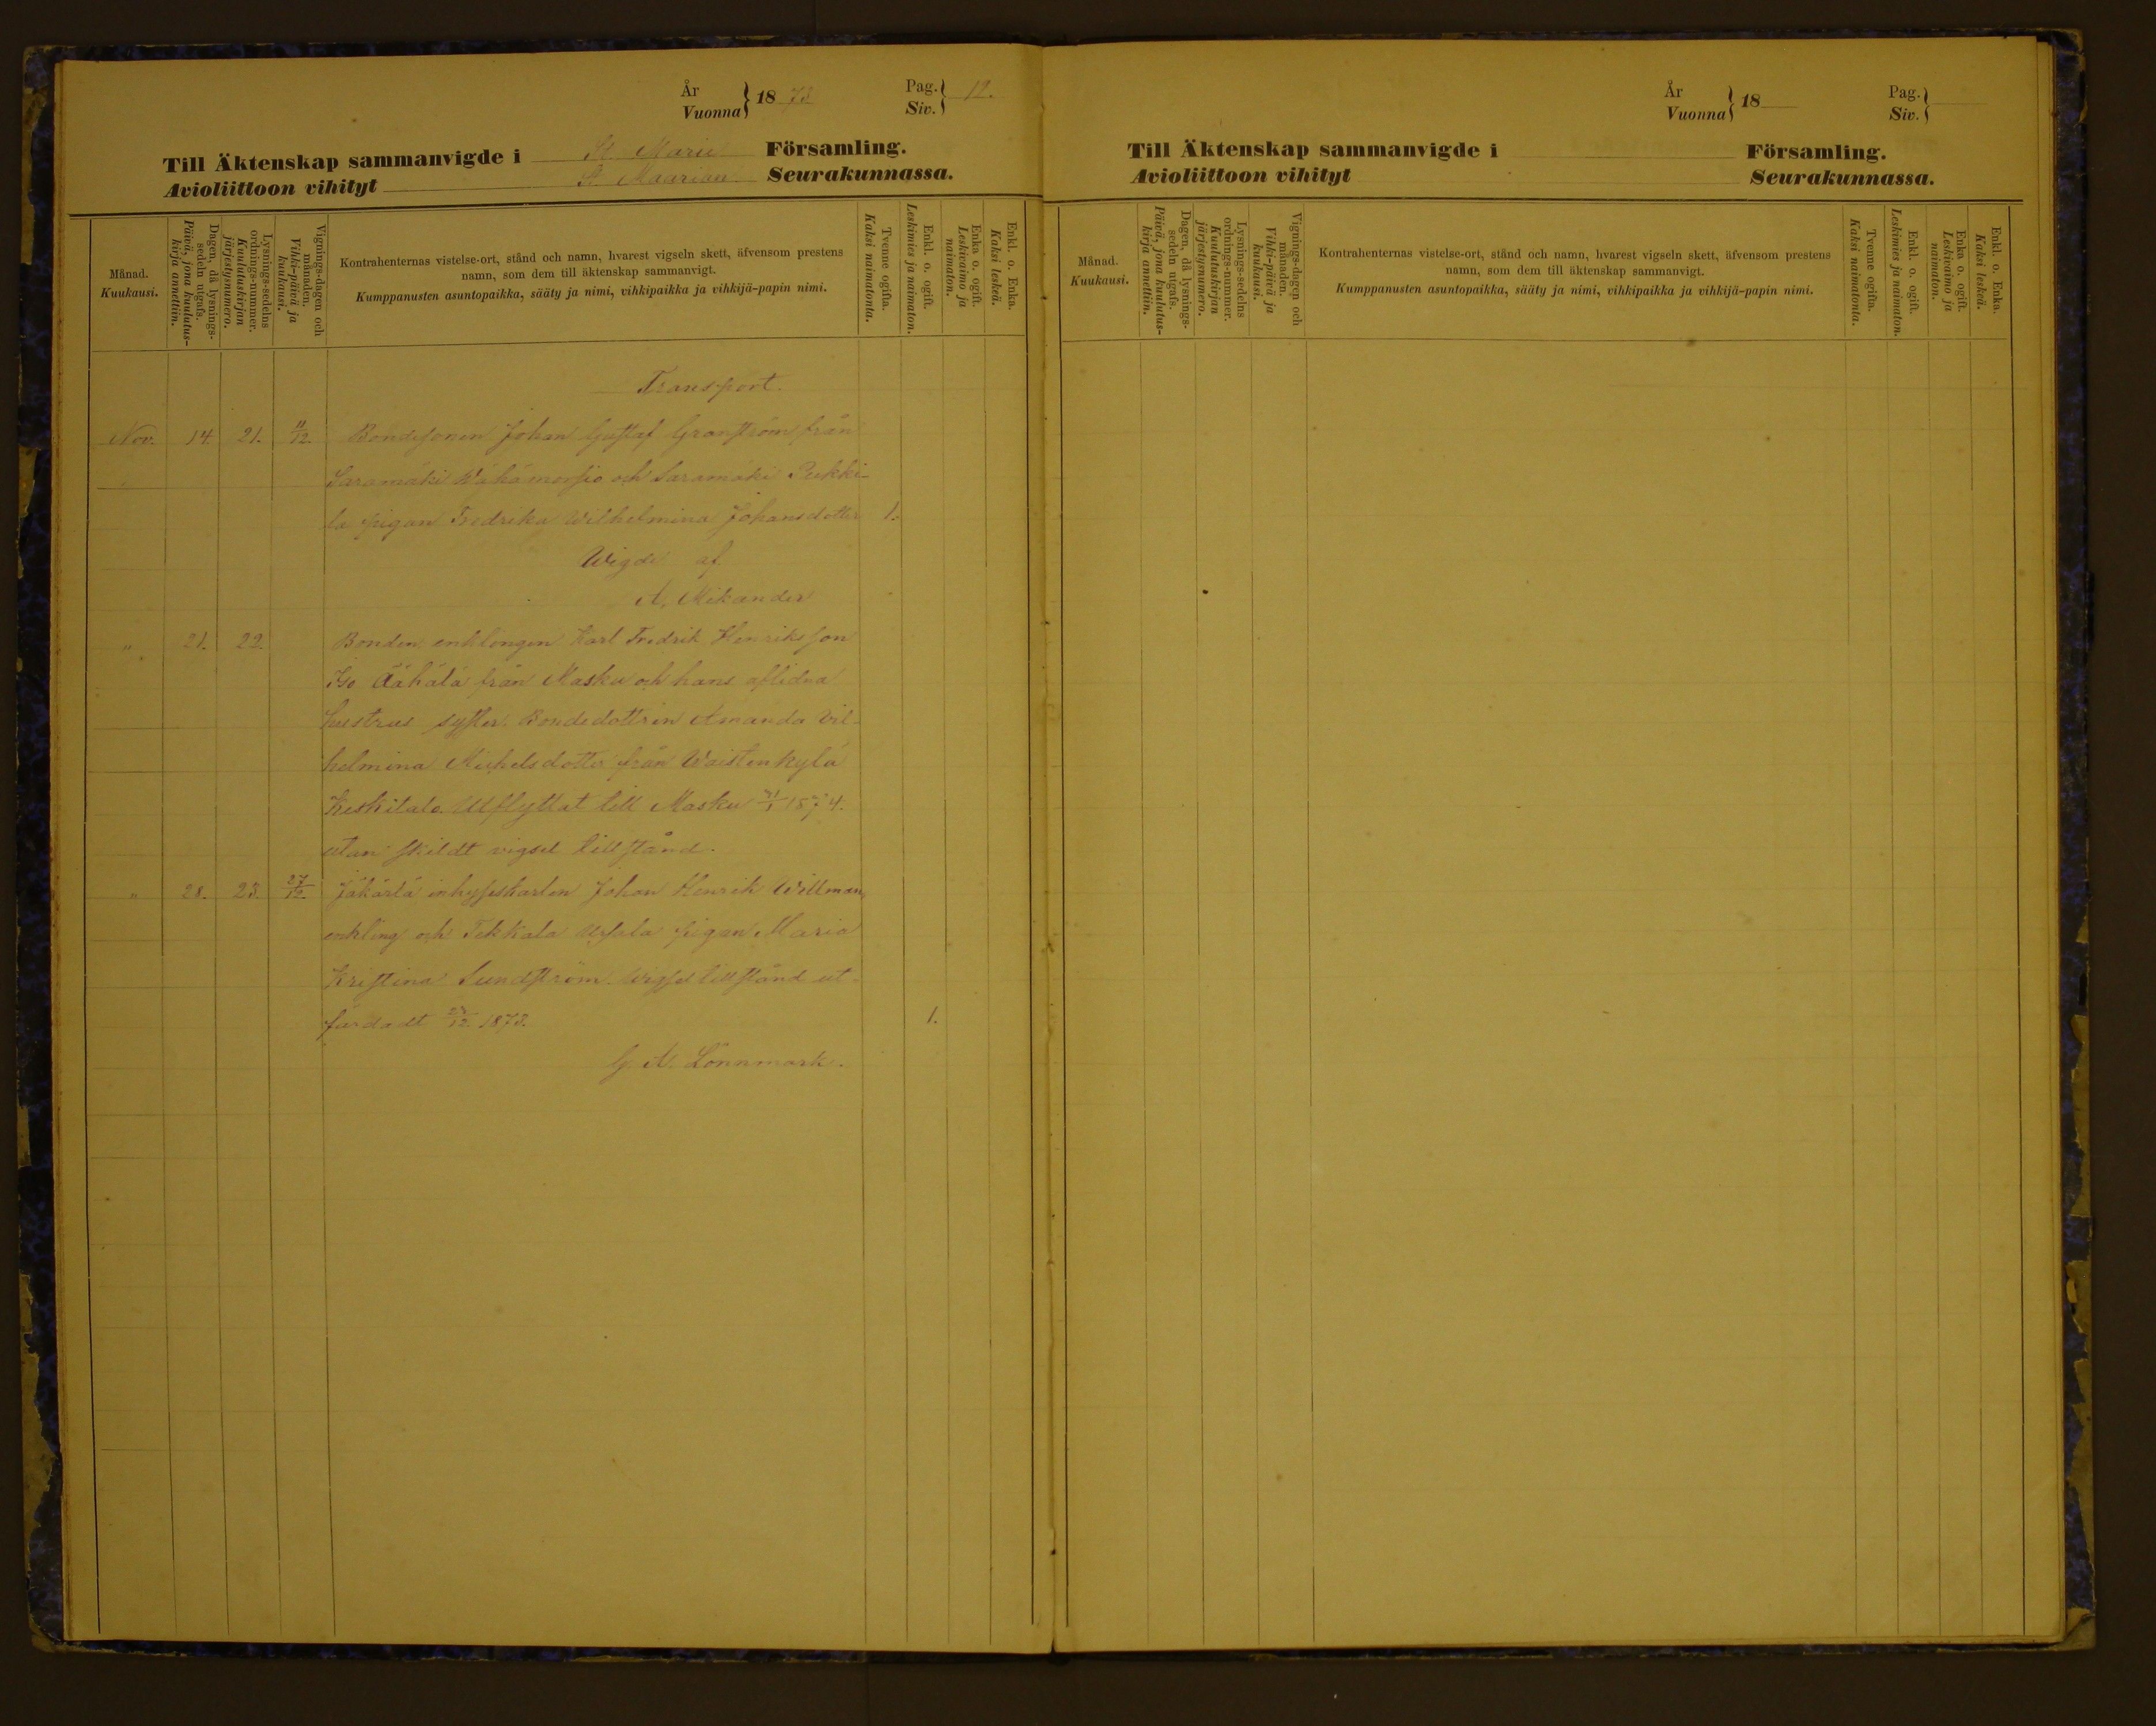 År
Vuonna } 18 73
Pag.
Siv. } 12.
Till Äktenskap sammanvigde i St. Marie Församling.
Avioliittoon vihityt S. Maarian Seurakunnassa.
Månad.
Kuukausi.
Dagen, då lysnings-
sedeln utgafs.
Päivä, jona kuulutus-
kirja annettiin.
Lysnings-sedelns
ordnings-nummer.
Kuulutuskirjan
järjestysnumero.
Vignings-dagen och
månaden.
Vihki-päivä ja
kuukausi.
Kontrahenternas vistelse-ort, stånd och namn, hvarest vigseln skett, äfvensom prestens
namn, som dem till äktenskap sammanvigt.
Kumppanusten asuntopaikka, sääty ja nimi, vihkipaikka ja vihkijä-papin nimi.
Tvenne ogifta.
Kaksi naimatonta.
Enkl. o. ogift.
Leskimies ja naimaton.
Enka o. ogift.
Leskivaimo ja
naimaton.
Enkl. o. Enka.
Kaksi leskeä.
Transport.
Nov. 14. 21. 11/12. Bondesonen Johan Gustaf Granström från
Saramäki Wähämoisio och Saramäki Pukki-
la pigan Fredrika Wilhelmina Johansdotter 1.
Wigde af
A. Mikander
" 21. 22. Bonden enklingen Karl Fredrik Henriksson
Iso Äähälä från Masku och hans aflidna
hustrus syster Bondedottren Amanda Vil-
helmina Michelsdotter från Waistenkylä
Keskitalo. Utflyttat till Masku 31/1 1874.
utan skildt vigsel tillstånd.
" 28. 23. 27/12. Jäkärlä inhyseskarlen Johan Henrik Willman,
enkling och Tekkala pigan Maria
Kristina Sundström. Vigsel tillstånd ut-
färdadt 23/12 1873. 1.
G. A. Lönnmark.
År
Vuonna } 18
Pag.
Siv. }
Till Äktenskap sammanvigde i Församling.
Avioliittoon vihityt Seurakunnassa.
Månad.
Kuukausi.
Dagen, då lysnings-
sedeln utgafs.
Päivä, jona kuulutus-
kirja annettiin.
Lysnings-sedelns
ordnings-nummer.
Kuulutuskirjan
järjestysnumero.
Vignings-dagen och
månaden.
Vihki-päivä ja
kuukausi.
Kontrahenternas vistelse-ort, stånd och namn, hvarest vigseln skett, äfvensom prestens
namn, som dem till äktenskap sammanvigt.
Kumppanusten asuntopaikka, sääty ja nimi, vihkipaikka ja vihkijä-papin nimi.
Tvenne ogifta.
Kaksi naimatonta.
Enkl. o. ogift.
Leskimies ja naimaton.
Enka o. ogift.
Leskivaimo ja
naimaton.
Enkl. o. Enka.
Kaksi leskeä.